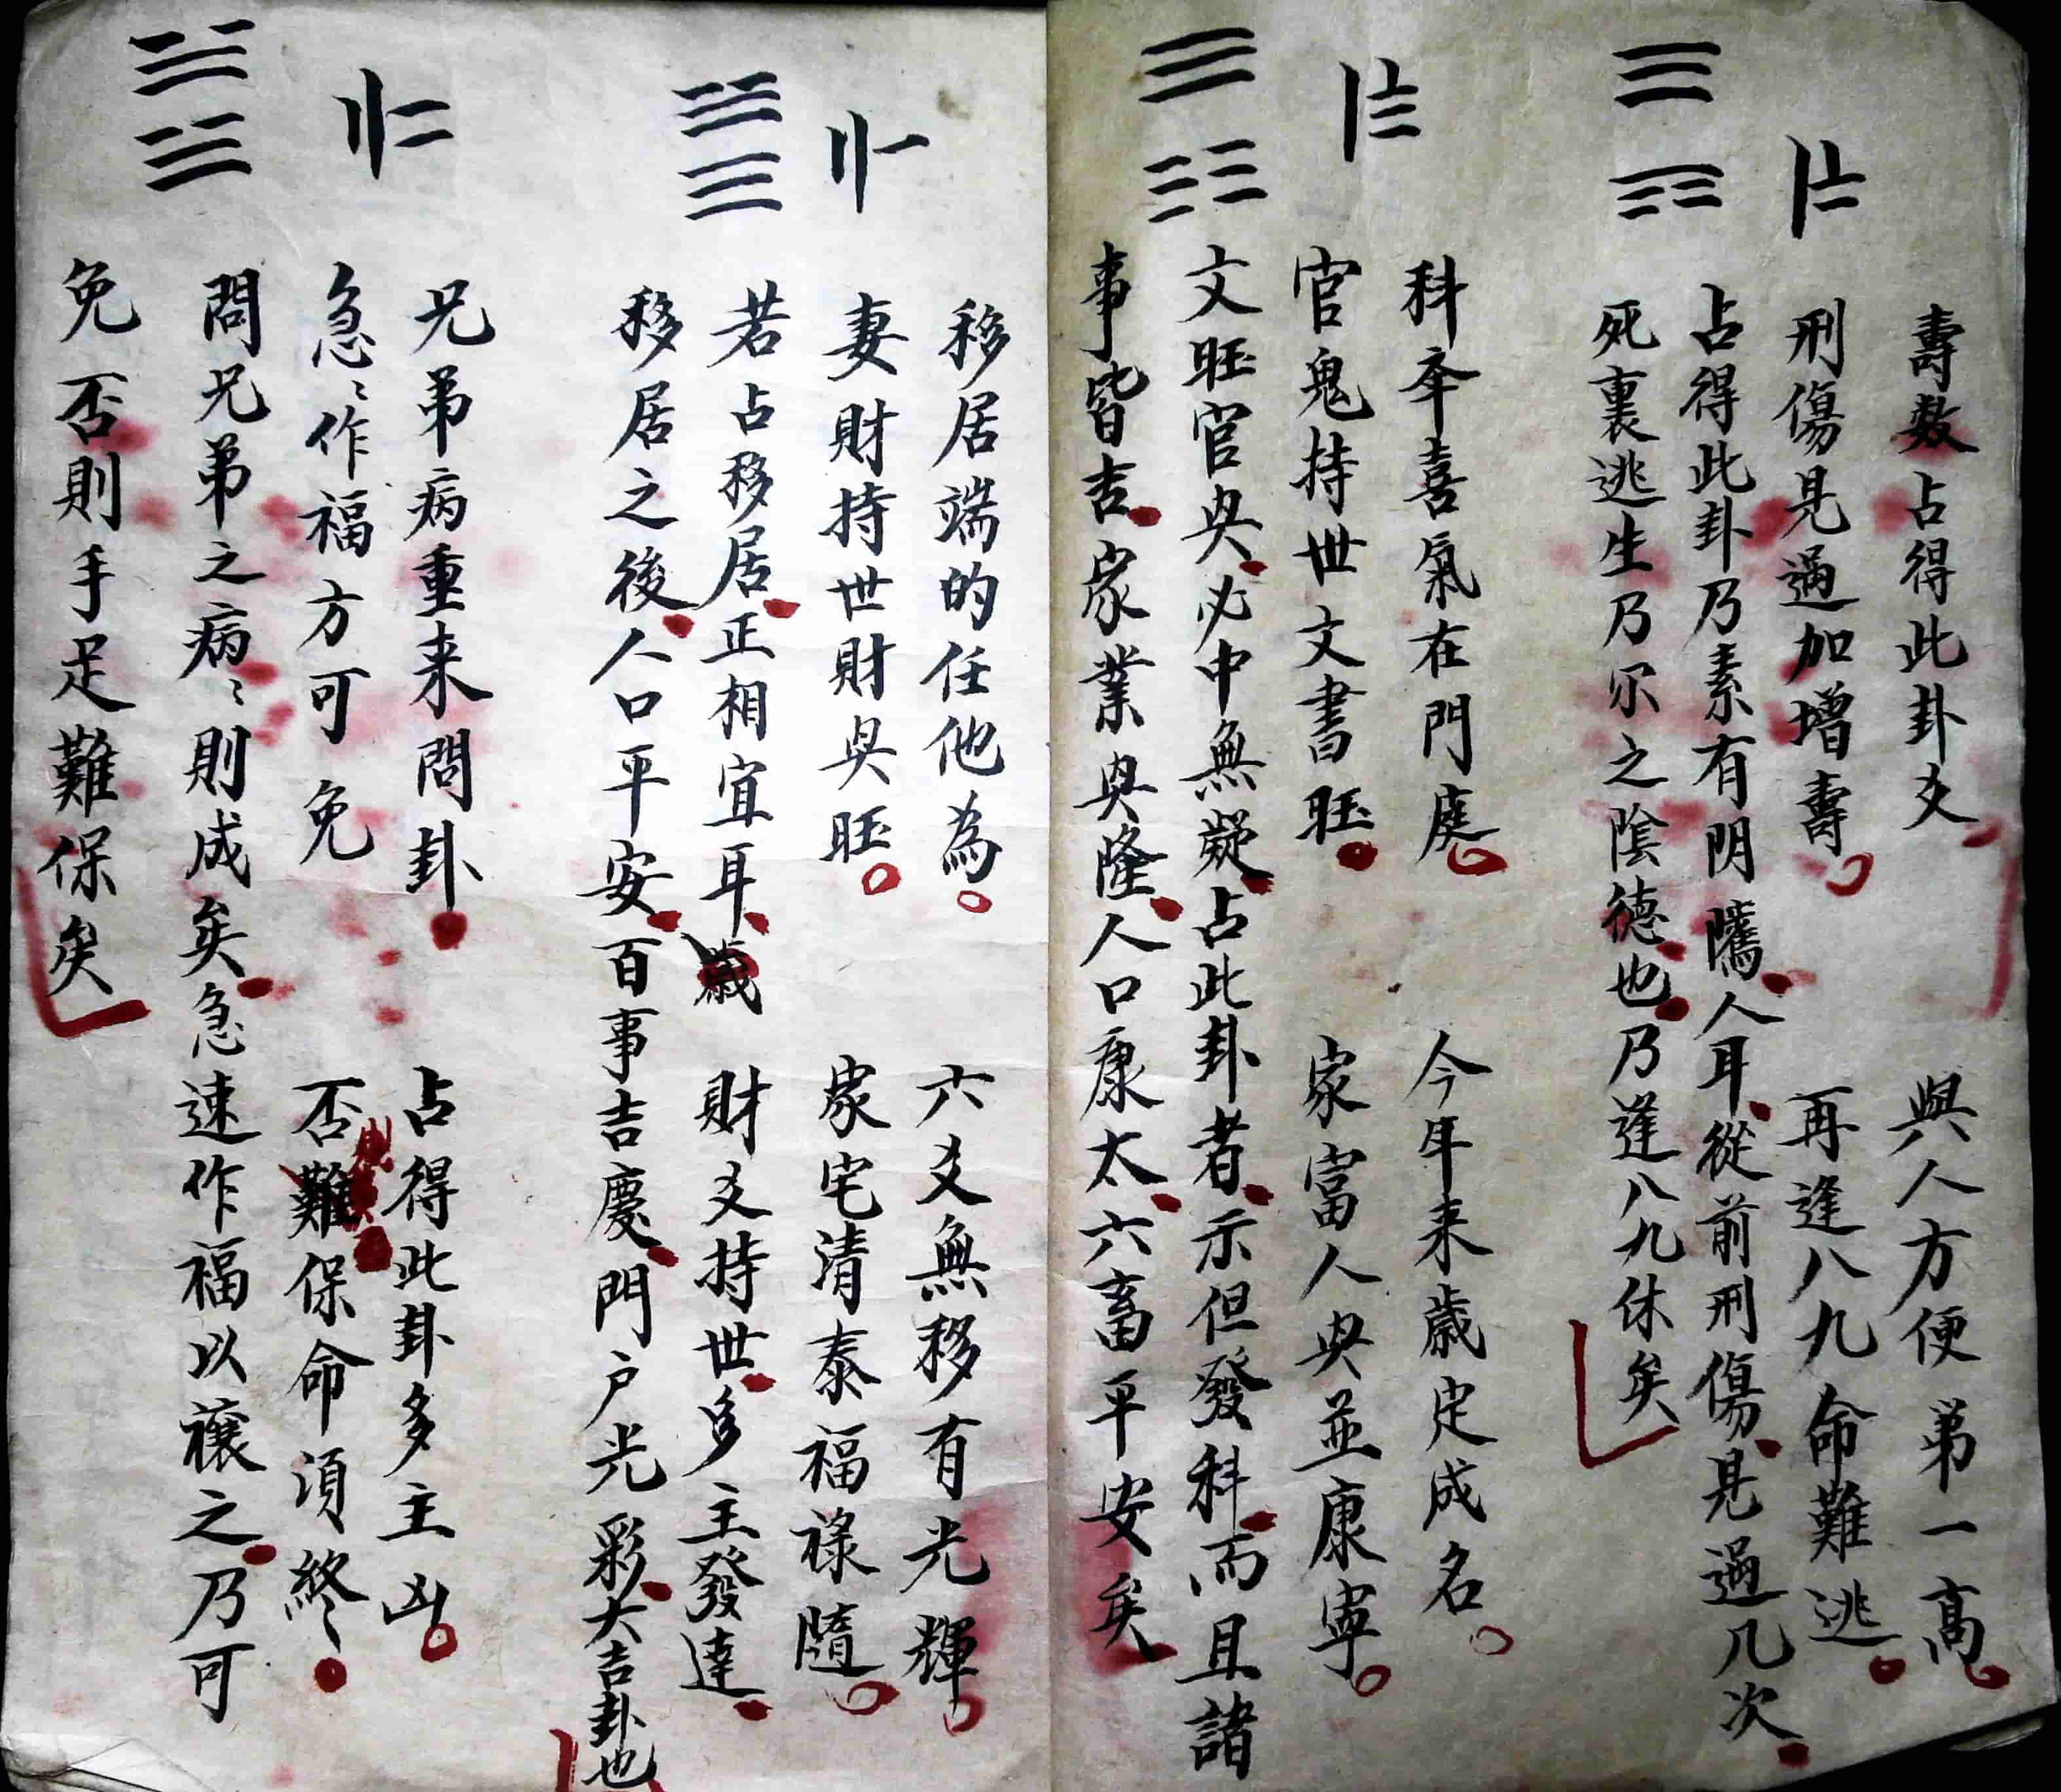 壽数占得此卦爻 與人方便第一高
刑傷見過加增壽 再逢八九命難逃
占得此卦乃素有阴騭人耳從前刑傷見過几次
死裏逃生乃尔之陰德也乃逢八九休矣
科夲喜氣在門庭 今年来歲定成名
官鬼持世文書旺 家富人㒷並康寧
文旺官㒷必中無疑占此卦者示但發科而且諸
事皆吉家業㒷隆人口康太六畜平安矣
移居端的任他為 六爻無移有光輝
妻財持世財㒷旺 家宅清泰福禄隨
若占移居正相宜耳 財爻持世多主發達
移居之後人口平安百事吉慶門户光彩大吉卦也
兄弟病重来問卦 占得此卦多主凶
急〻作福方可免 否則難保命須終
問兄弟之病〻則成矣急速作福以禳之乃可
免否則手足難保矣